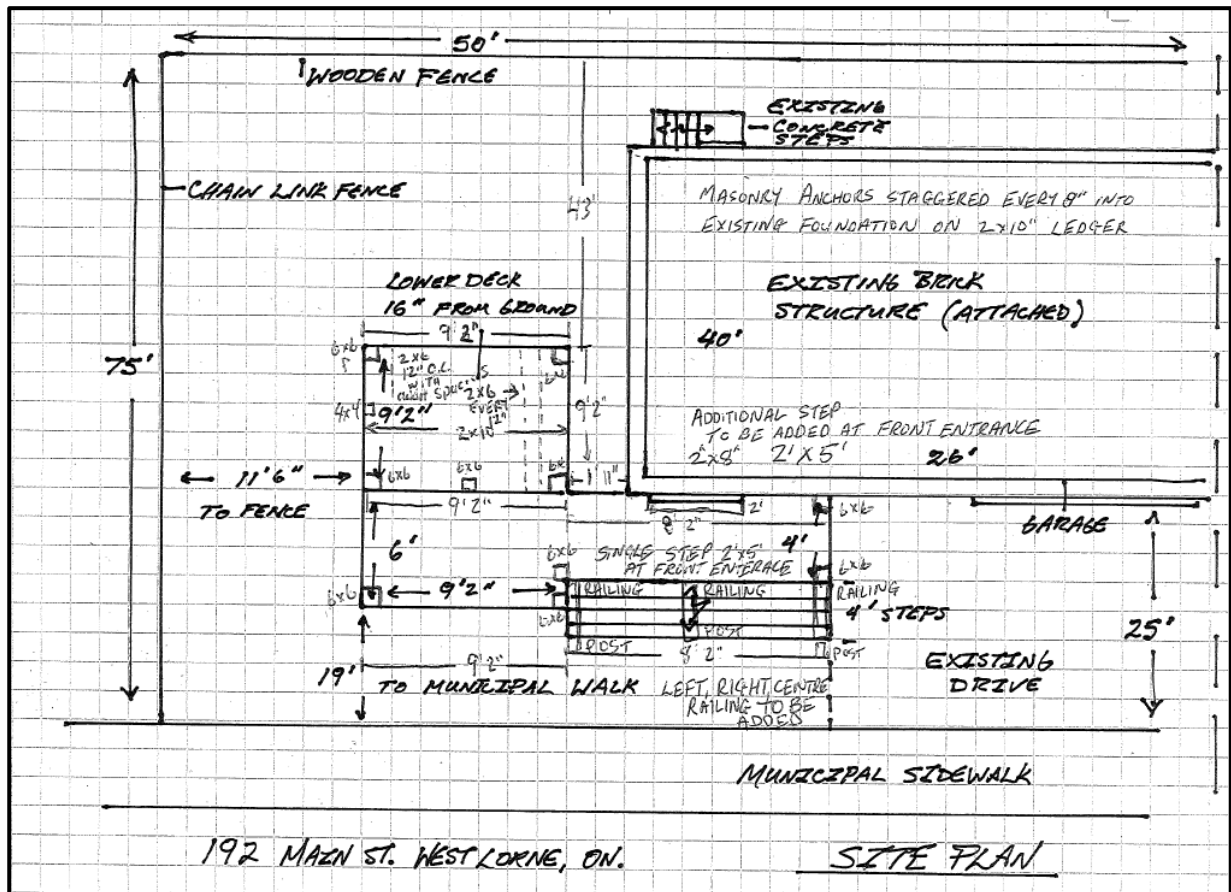 50'
WOODEN FENCE
EXISTING
CONCRETE
STEPS
CHAIN LINK FENCE
43'
MASONRY ANCHORS STAGGERED EVERY 8" INTO
EXISTING FOUNDATION ON 2x10" LEDGER
LOWER DECK
16" FROM GROUND
EXISTING BRICK
STRUCTURE (ATTACHED)
9'2"
40'
75'
6x6
2x6
12" O.C.
WITH
2x6
EVERY
12"
6x6
4x4
9'2"
2x10
9'2"
ADDITIONAL STEP
TO BE ADDED AT FRONT ENTRANCE
2"x8" 2'x5'
26'
11'6"
TO FENCE
6x6
6x6
6x6
1'11"
9'2"
8'2"
2'
6x6
GARAGE
6'
6x6
SINGLE STEP 2'x5'
AT FRONT ENTERACE
4'
6x6
6x6
9'2"
6x6
RAILING
RAILING
RAILING
4' STEPS
25'
POST
POST
POST
8'2"
9'2"
19'
TO MUNICIPAL WALK
LEFT, RIGHT, CENTRE
RAILING TO BE
ADDED
EXISTING
DRIVE
MUNICIPAL SIDEWALK
192 MAIN ST. WEST LORNE, ON.
SITE PLAN